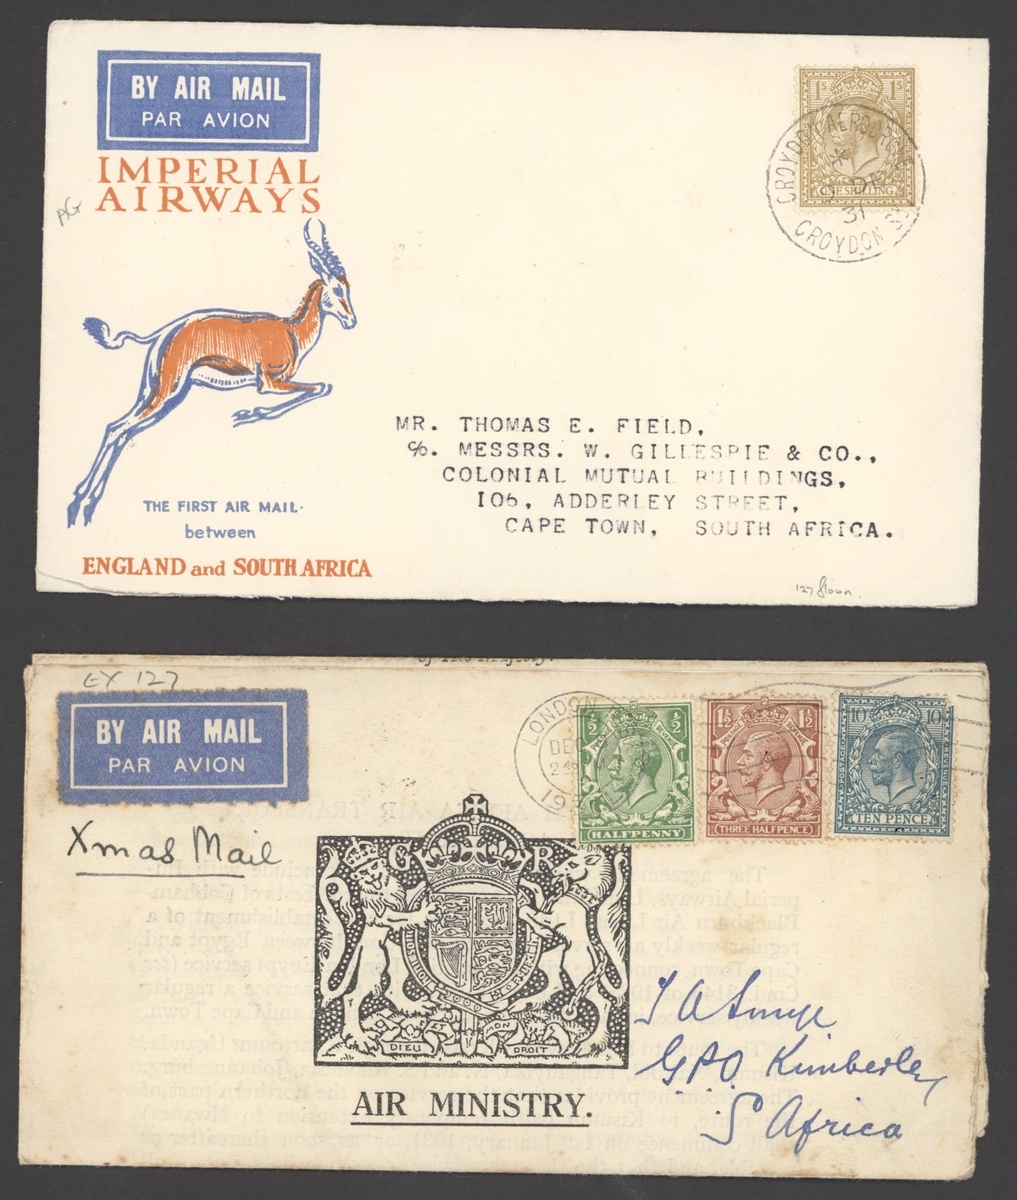 BY AIR MAIL
PAR AVION
IMPERIAL
AIRWAYS
AG
1S 1S
ONE SHILLING
CROYDON AERODROME
31
CROYDON
MR. THOMAS E. FIELD,
c/o. MESSRS. W. GILLESPIE & CO.,
COLONIAL MUTUAL BUILDINGS,
106, ADDERLEY STREET,
CAPE TOWN, SOUTH AFRICA.
THE FIRST AIR MAIL.
between
ENGLAND and SOUTH AFRICA
127 flown.
EX 127
BY AIR MAIL
PAR AVION
Xmas Mail
LONDON
DE
½ ½
HALFPENNY
1½ 1½
THREE HALFPENCE
10 10
POSTAGE REVENUE
TEN PENCE
G R
DIEU ET MON DROIT
AIR MINISTRY.
GPO Kimberley,
S Africa